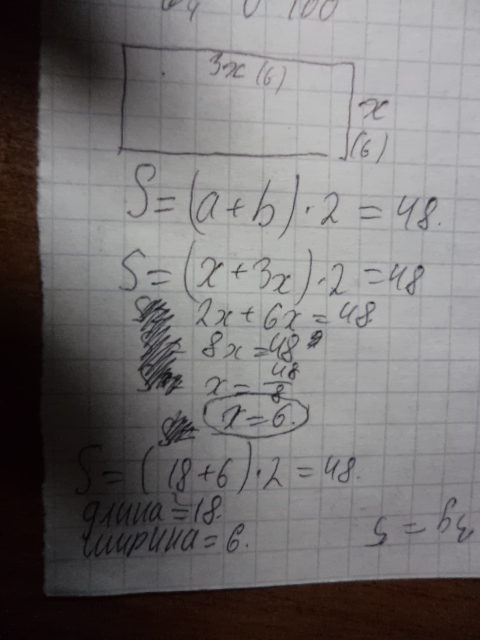 0 100
3x (6)
x
(6)
S = (a + b) · 2 = 48.
S = (x + 3x) · 2 = 48
2x + 6x = 48
8x = 48
x = 48/8
x = 6.
S = (18 + 6) · 2 = 48.
длина = 18.
ширина = 6.